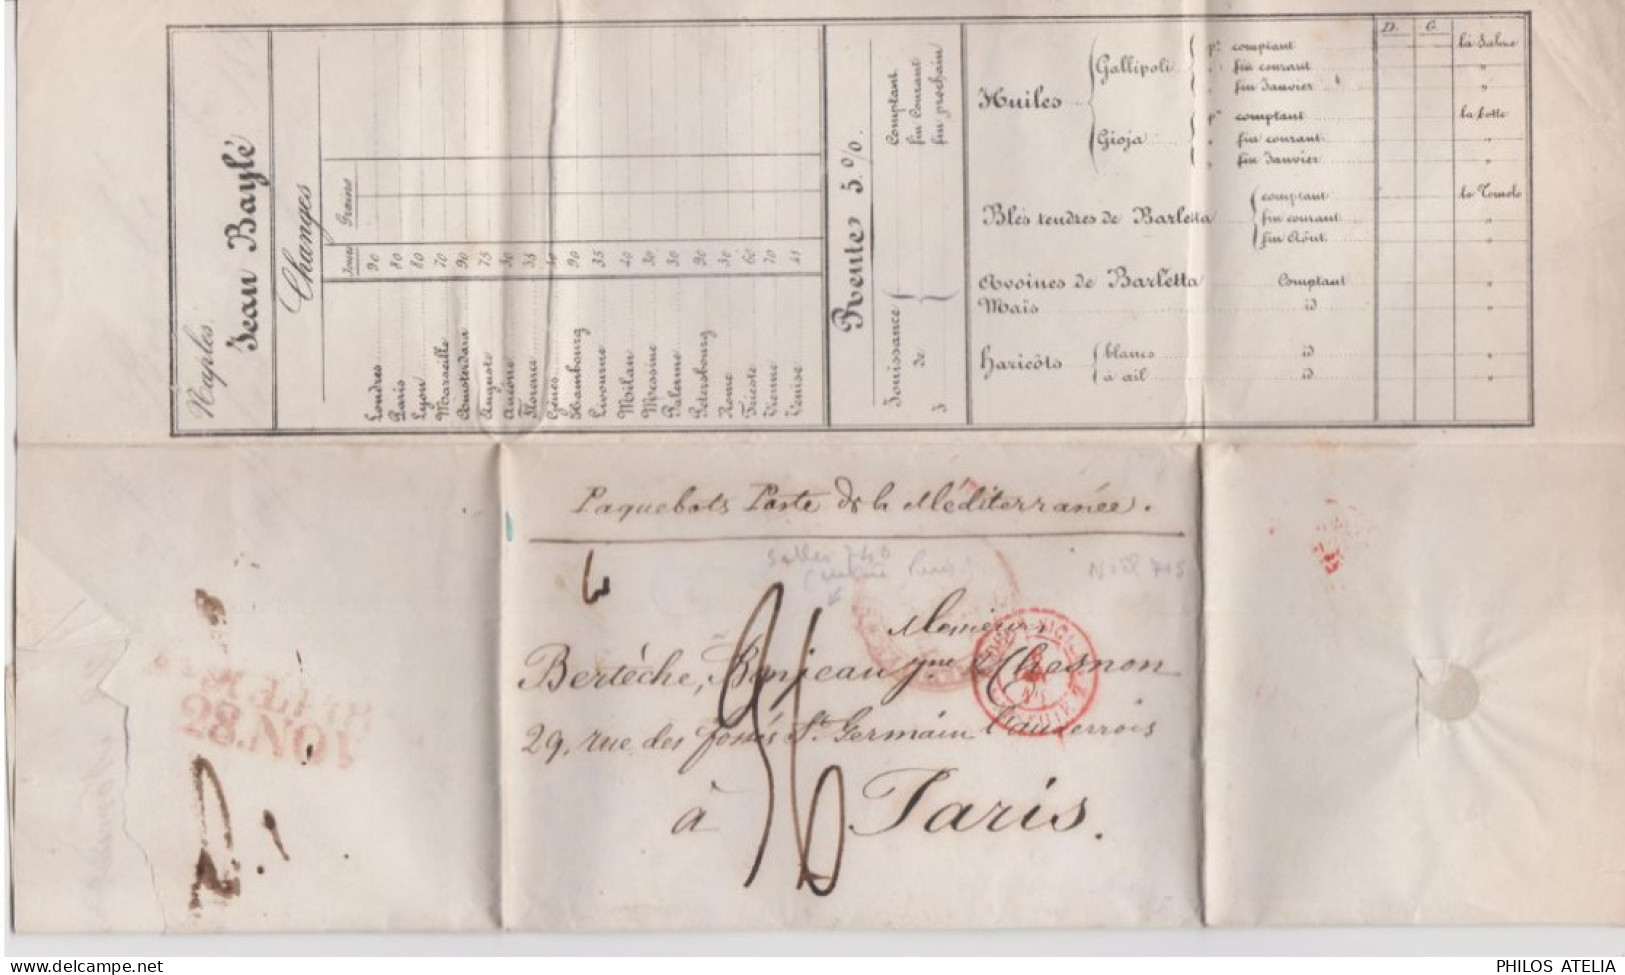 Naples.
Jean Baylé
Changes
Jours Grains
Londres 90
Paris 80
Lyon 80
Marseille 70
Amsterdam 90
Auguste 75
Ancône 30
Florence 35
Gênes 40
Hambourg 90
Livourne 35
Milan 40
Messine 30
Palerme 30
Petersbourg 90
Rome 30
Trieste 60
Vienne 70
Venise 41
Rente 5.%.
Jouissance Comptant
de fin Courant
fin prochain
D. G.
Huiles Gallipoli pr. comptant la Salme
" fin courant "
" fin Janvier "
Gioja pr. comptant la botte
" fin courant "
" fin Janvier "
Blés tendres de Barletta comptant le Tomolo
fin courant "
fin Août "
Avoines de Barletta Comptant "
Maïs id "
Haricôts blancs id "
à œil id "
Paquebots Poste de la Méditerranée.
Salles 740
Noël 715
Messieurs
Bertèche, Bonjean jne & Chesnon
29, rue des fossés St. Germain l'auxerrois
à Paris.
28.NOV
PHILOS ATELIA